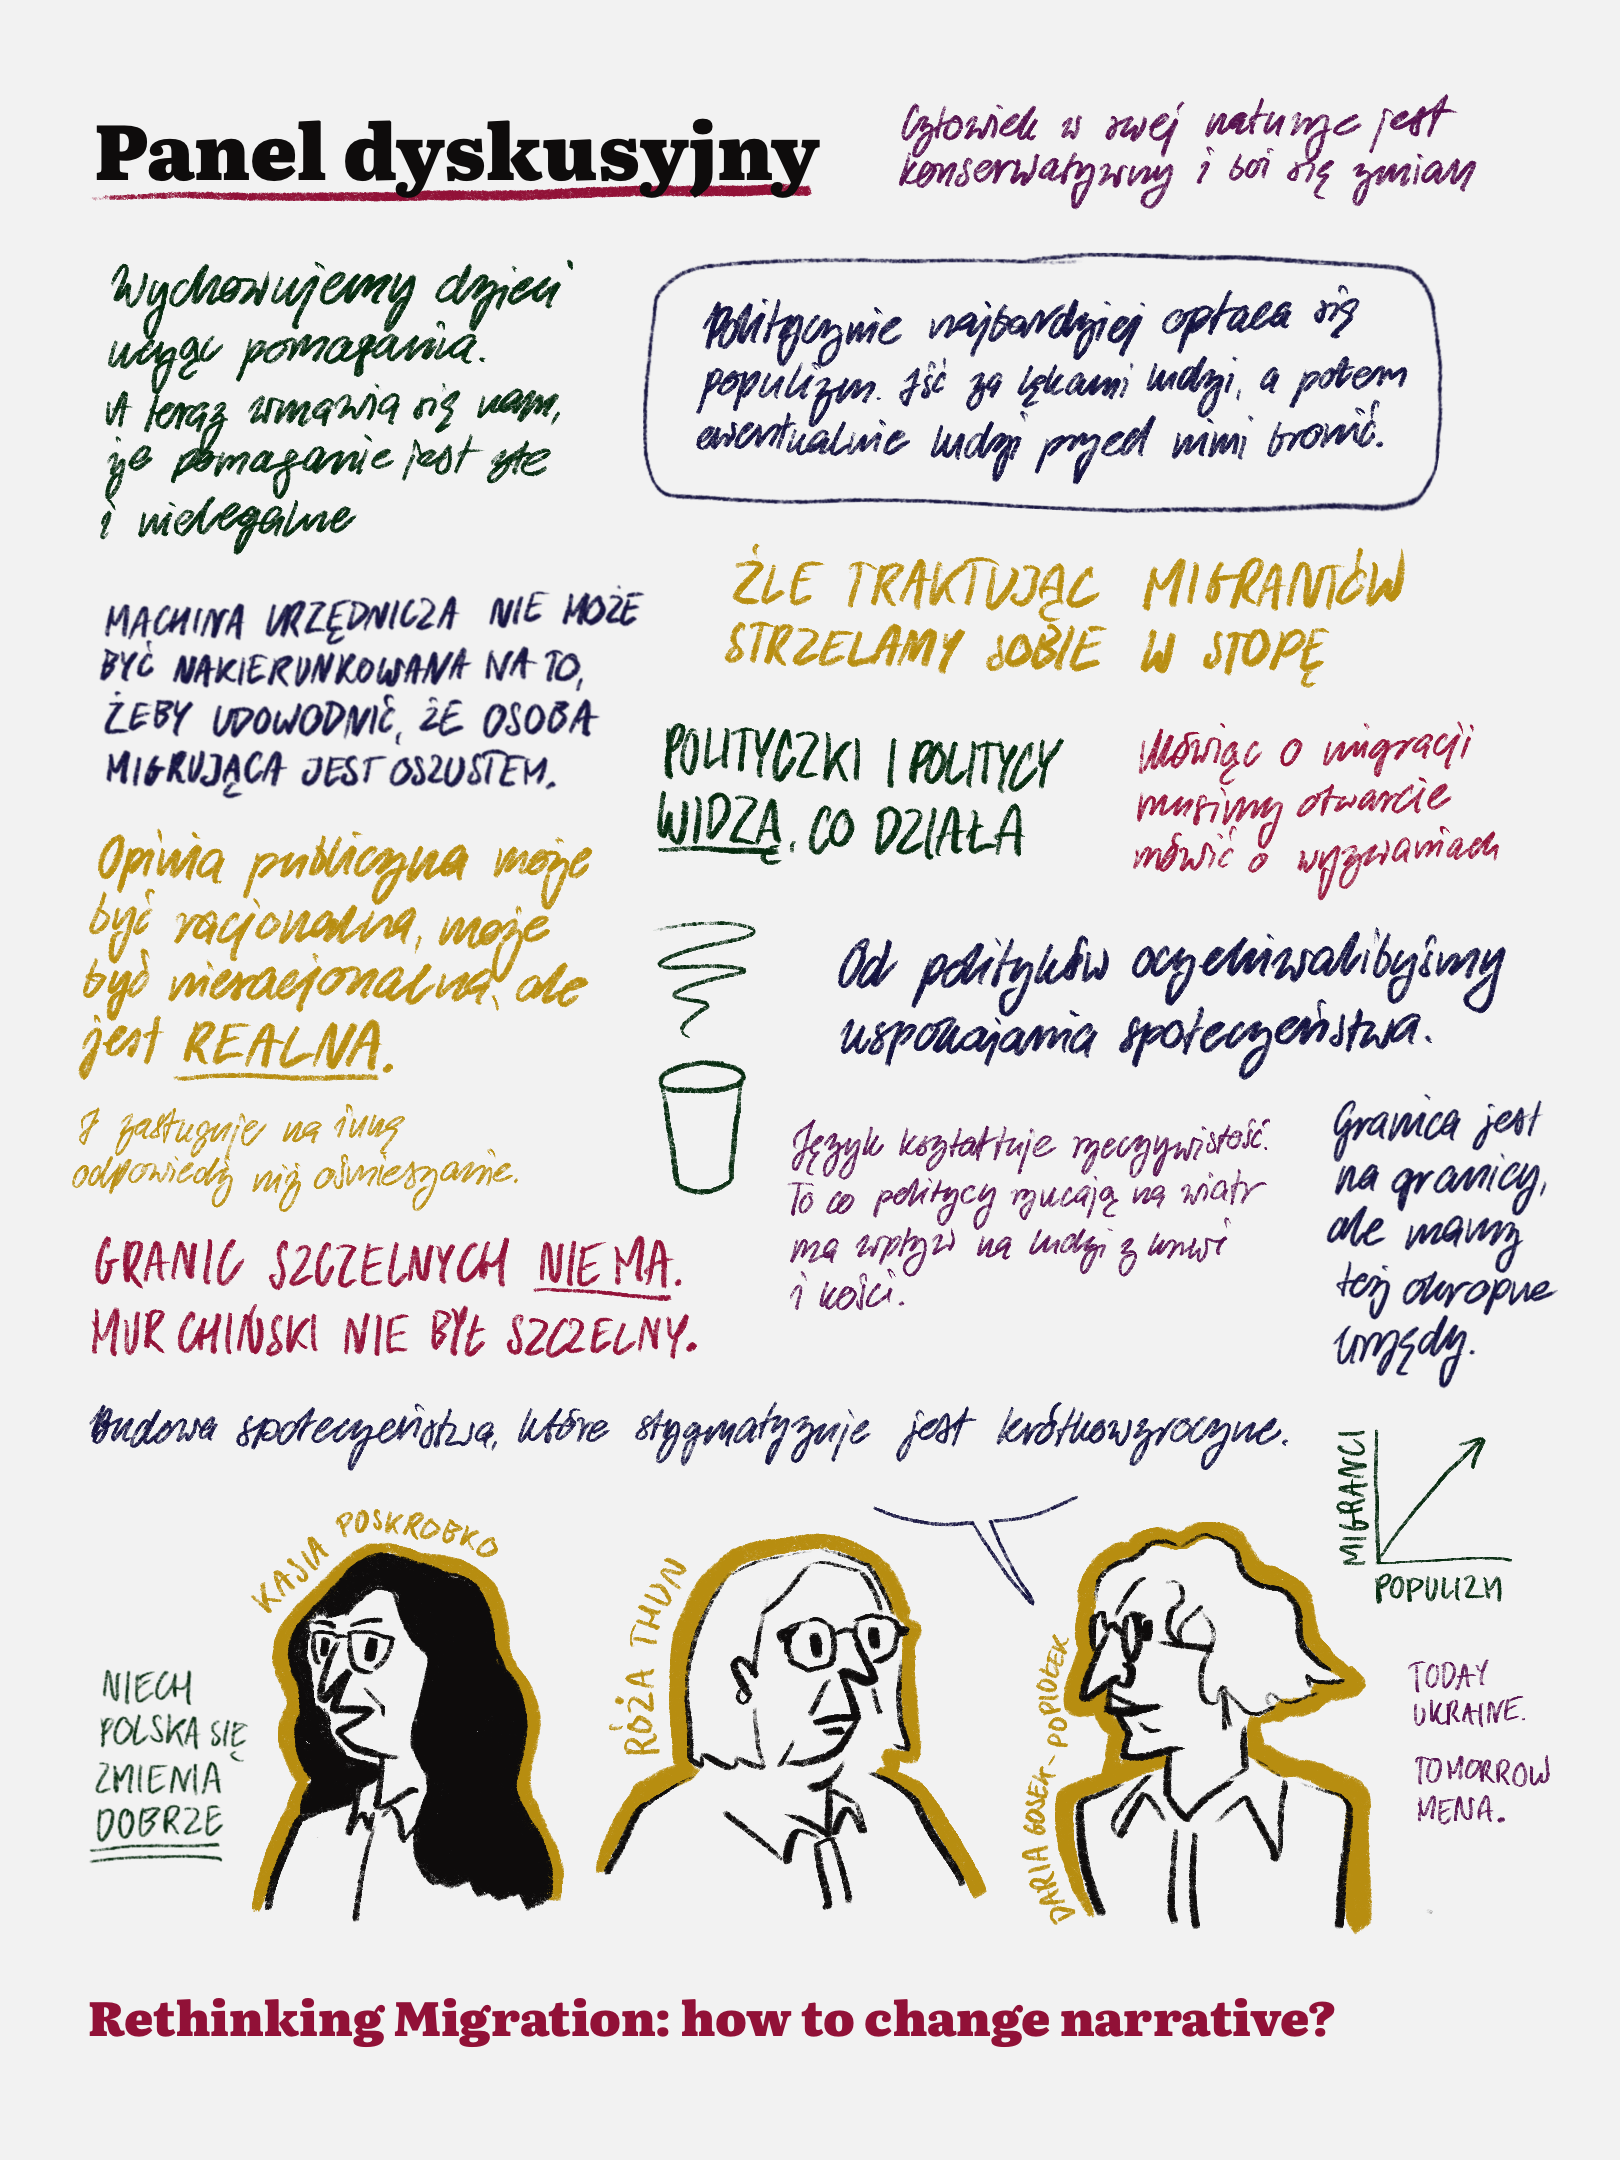 Panel dyskusyjny
Człowiek w swej naturze jest
konserwatywny i boi się zmian
Wychowujemy dzieci
ucząc pomagania.
A teraz wmawia się nam,
że pomaganie jest złe
i nielegalne
Politycznie najbardziej opłaca się
populizm. Iść za lękami ludzi, a potem
ewentualnie ludzi przed nimi bronić.
ŹLE TRAKTUJĄC MIGRANTÓW
STRZELAMY SOBIE W STOPĘ
MACHINA URZĘDNICZA NIE MOŻE
BYĆ NAKIERUNKOWANA NA TO,
ŻEBY UDOWODNIĆ, ŻE OSOBA
MIGRUJĄCA JEST OSZUSTEM.
POLITYCZKI I POLITYCY
WIDZĄ, CO DZIAŁA
Mówiąc o migracji
musimy otwarcie
mówić o wyzwaniach
Opinia publiczna może
być racjonalna, może
być nieracjonalna, ale
jest REALNA.
I zasługuje na inną
odpowiedź niż ośmieszanie.
Od polityków oczekiwalibyśmy
uspokajania społeczeństwa.
Język kształtuje rzeczywistość.
To co politycy rzucają na wiatr
ma wpływ na ludzi z krwi
i kości.
Granica jest
na granicy,
ale mamy
też okropne
urzędy.
GRANIC SZCZELNYCH NIE MA.
MUR CHIŃSKI NIE BYŁ SZCZELNY.
Budowa społeczeństwa, które stygmatyzuje jest krótkowzroczne.
MIGRANCI
POPULIZM
KASIA POSKROBKO
RÓŻA THUN
DARIA GOSEK-POPIOŁEK
NIECH
POLSKA SIĘ
ZMIENIA
DOBRZE
TODAY
UKRAINE.
TOMORROW
MENA.
Rethinking Migration: how to change narrative?